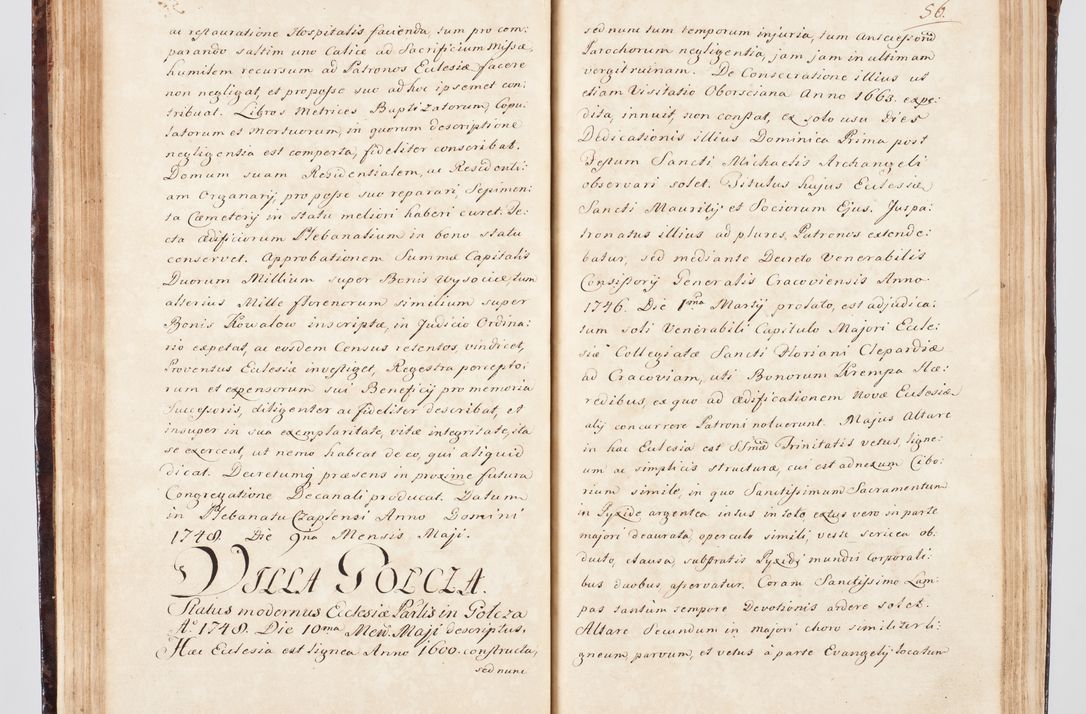 ac restauratione Hospitalis facienda, tum pro com:
parando saltim uno Calice ad Sacrificium Missæ,
humilem recursum ad Patronos Eclesiæ facere
non negligat, et proposse suo ad hoc ipsemet con:
tribuat. Libros Metrices Baptizatorum, Copu:
latorum et Mortuorum, in quorum descriptione
negligentia est comperta, fideliter conscribat.
Domum suam Residentialem, ac Residenti:
am Organarij, proposse suo reparari, Sepimen:
ta Cæmeterij in statu meliori haberi curet. Te:
cta Ædificiorum Plebanalium in bono statu
conservet. Approbationem Summæ Capitalis
Duorum Millium super Bonis Wysocice, tum
alterius Mille florenorum similium super
Bonis Kowalow inscriptæ, in Judicio Ordina:
rio expetat, ac eosdem Census retentos, vindicet,
Proventus Eclesiæ investiget, Regestra percepto:
rum et expensorum sui Beneficij pro memoria
Successoris, diligenter ac fideliter describat, et
insuper in sua exemplaritate, vitæ integritate, ita
se exerceat, ut nemo habeat de eo, qui aliquid
dicat. Decretumq præsens in proxime futura
Congregatione Decanali producat. Datum
in Plebanatu Czaplensi Anno Domini
1748. Die 9na Mensis Maji.
VILLA GOŁCZA.
Status modernus Ecclesiæ Parlis in Gołcza
A° 1748. Die 10ma Men. Maji descriptus.
Hæc Eclesia est lignea Anno 1600. constructa,
sed nunc
56.
sed nunc tum temporum injuria, tum Antecessorū
Parochorum negligentia, jam jam in ultimam
vergit ruinam. De Consecratione illius ut
etiam Visitatio Oborsciana Anno 1663. expe:
dita, innuit, non constat, ex solo usu Dies
Dedicationis illius Dominica Prima post
Festum Sancti Michaelis Archangeli
observari solet. Titulus hujus Eclesiæ
Sancti Mauritij et Sociorum Ejus. Juspa:
tronatus illius ad plures, Patronos extende:
batur, sed mediante Decreto Venerabilis
Consistorij Generalis Cracoviensis Anno
1746. Die 1ma Martij prolato, est adjudica:
tum soli Venerabili Capitulo Majori Eccle:
siæ Collegiatæ Sancti Floriani Clepardiæ
ad Cracoviam, uti Bonorum Krempa Hæ:
redibus, ex quo ad Ædificationem Novæ Eclesiæ
alij concurrere Patroni noluerunt. Majus Altare
in hac Eclesia est SSmæ Trinitatis vetus, ligne:
um ac simplicis structuræ, cui est adnexum Cibo:
rium simile, in quo Sanctissimum Sacramentum
in Pyxide argentea intus in toto, extus vero in parte
majori deaurata, operculo simili, veste sericea ob:
ducto, clausa, substratis Pyxidi mundis Corporali:
bus duobus, asservatur. Coram Sanctissimo Lam:
pas tantum tempore Devotionis ardere solet.
Altare Secundum in majori choro similiter li:
gneum, parvum, et vetus à parte Evangelij locatum